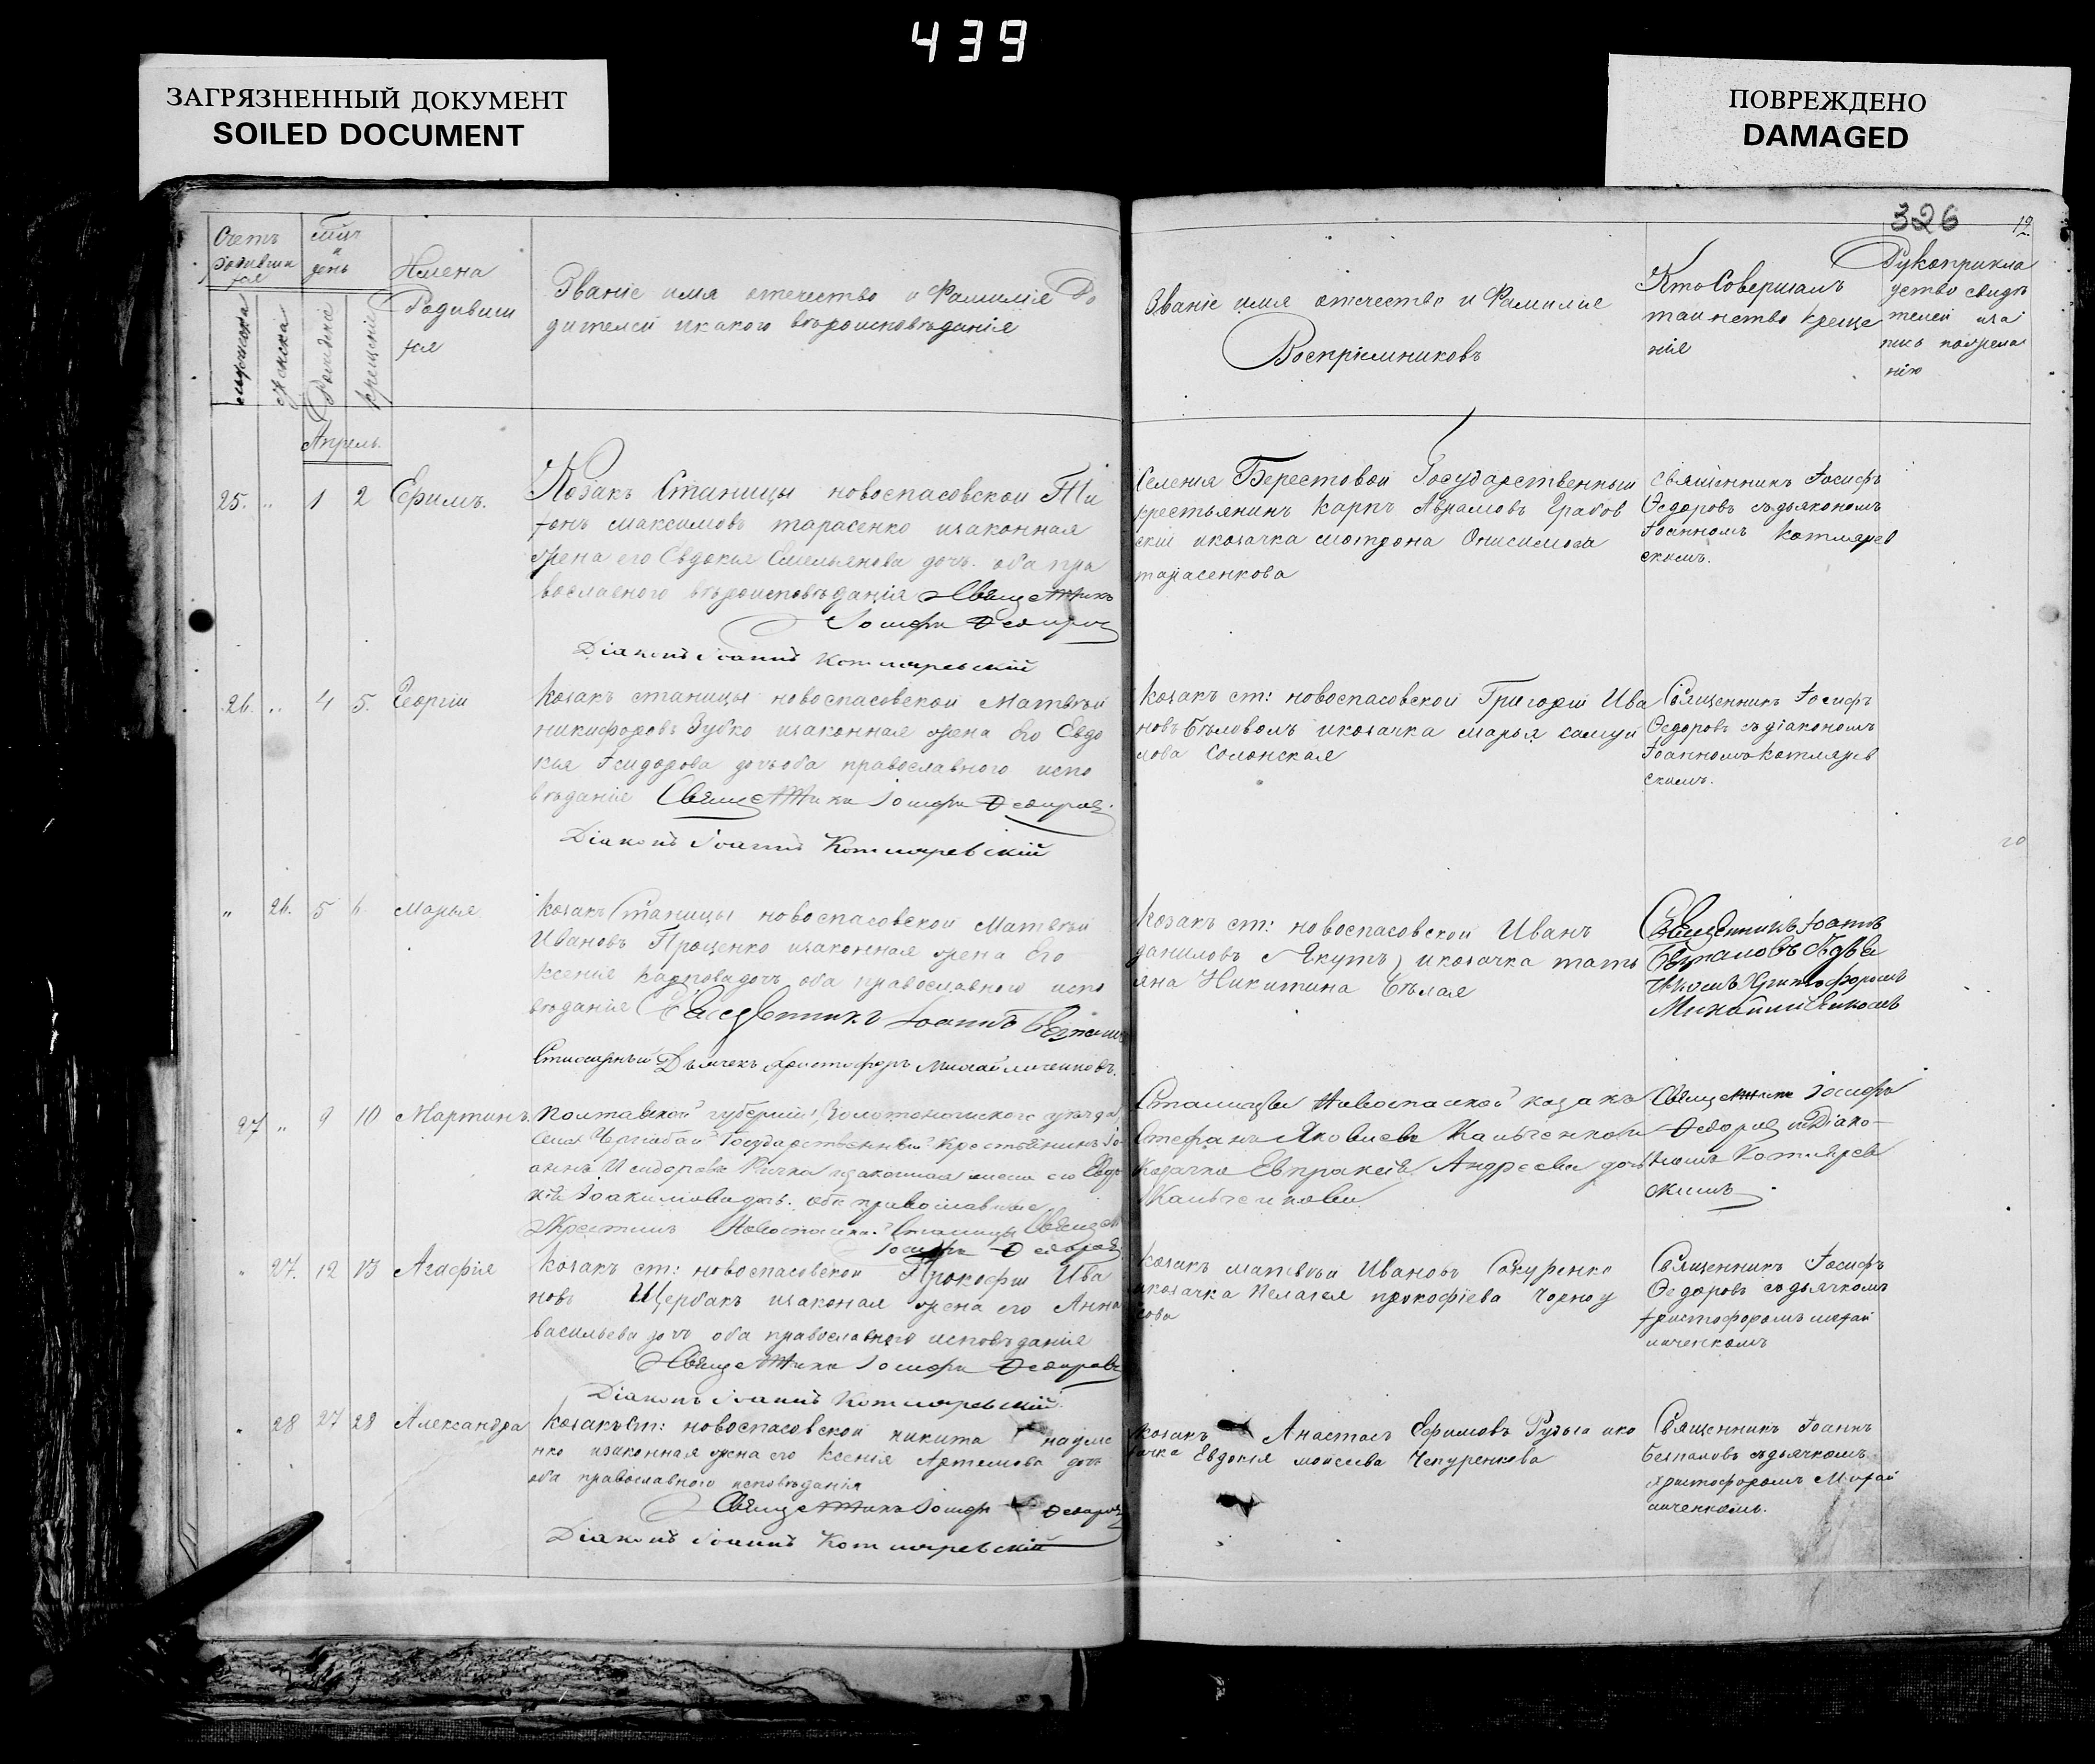 439
ЗАГРЯЗНЕННЫЙ ДОКУМЕНТ
SOILED DOCUMENT
ПОВРЕЖДЕНО
DAMAGED
326
12
Счетъ
день
Имена
Родивши
Званіе имя отечество и Фамилія Ро
дителей и какого вѣроисповѣданія
Званіе имя отечество и Фамиліе
Воспріемниковъ
Кто Совершалъ
таинство креще
нія
Рукоприкла
дство свидѣ
телей
нію
Апрѣль.
25. „ 1 2 Ефимъ.
Козакъ Станицы новоспасовской Три
фонъ максимовъ тарасенко изаконная
жена его Евдокія Емельянова дочь. оба пра
вославного вѣроисповѣданія Священникъ
Іосифъ Ѳедоровъ
Діаконъ Іоаннъ Котляревскій
Селенія Берестовой Государственный
крестьянинъ Карпъ Аврамовъ Грабов
скій икозачка мотрона Онисимова
тарасенкова
Священникъ Іосифъ
Ѳедоровъ съдьякономъ
Іоанномъ Котлярев
скимъ.
26. „ 4 5. Георгій
Козакъ станицы новоспасовской Матвѣй
никифоровъ Зубко изаконная жена его Евдо
кія Ісидорова дочь оба православного испо
вѣданія Священникъ Іосифъ Ѳедоровъ.
Діаконъ Іоаннъ Котляревскій
Козакъ ст: новоспасовской Григорій Ива
новъ Бѣловолъ икозачка марья самуи
лова Солонская
Священникъ Іосифъ
Ѳедоровъ съдіакономъ
Іоанномъ Котлярев
скимъ.
„ 26. 5 6 Марья
Козакъ Станицы новоспасовской Матвѣй
Ивановъ Проценко изаконная жена его
ксенія карповадочь оба православного испо
вѣданія Священникъ Іоаннъ
Дьячекъ Христофоръ
Козакъ ст: новоспасовской Иванъ
даниловъ Якутъ, икозачка тать
яна Никитина Бѣлая
Священникъ Іоаннъ
Христофоромъ
27 „ 9 10 Мартинъ.
Полтавской губерніи, Золотоношского уѣзда
Села Чергабай Государственный Крестьянинъ Іо
аннъ Исидоровъ изаконная жена его Евдо
кія Іоакимовадочь. оба православные
Крестилъ Новоспаской Станицы
Іосифъ Ѳедоровъ
Станицы Новоспаской казакъ
Стефанъ Яковлевъ
Казачка Евпраксія Андреева дочь
Священникъ Іосифъ
Ѳедоровъ съДіако-
номъ Котлярев
скимъ
„ 27. 12 13 Агафія
Козакъ ст: новоспасовской Прокофій Ива
новъ Щербакъ изаконая жена его Анна
васильева дочь оба православного исповѣданія
Священникъ Іосифъ Ѳедоровъ
Діаконъ Іоаннъ Котляревскій
Козакъ матвѣй Ивановъ Сакуренко
икозачка Пелагея прокофіева Чорноу
сова
Священникъ Іосифъ
Ѳедоровъ съдьячкомъ
христофоромъ михай
личенкомъ
„ 28 27 28 Александра
Козакъ ст: новоспасовской никита
нко изаконная жена его Ксенія Артемова дочь
оба православного исповѣданія
Священникъ Іосифъ Ѳедоровъ
Діаконъ Іоаннъ Котляревскій
Козакъ Анастасъ Ефимовъ ико
зачка Евдокія моисеева Чепуренкова
Священникъ Іоаннъ
Безпаловъ съдьячкомъ
христофоромъ Михай
личенкомъ.